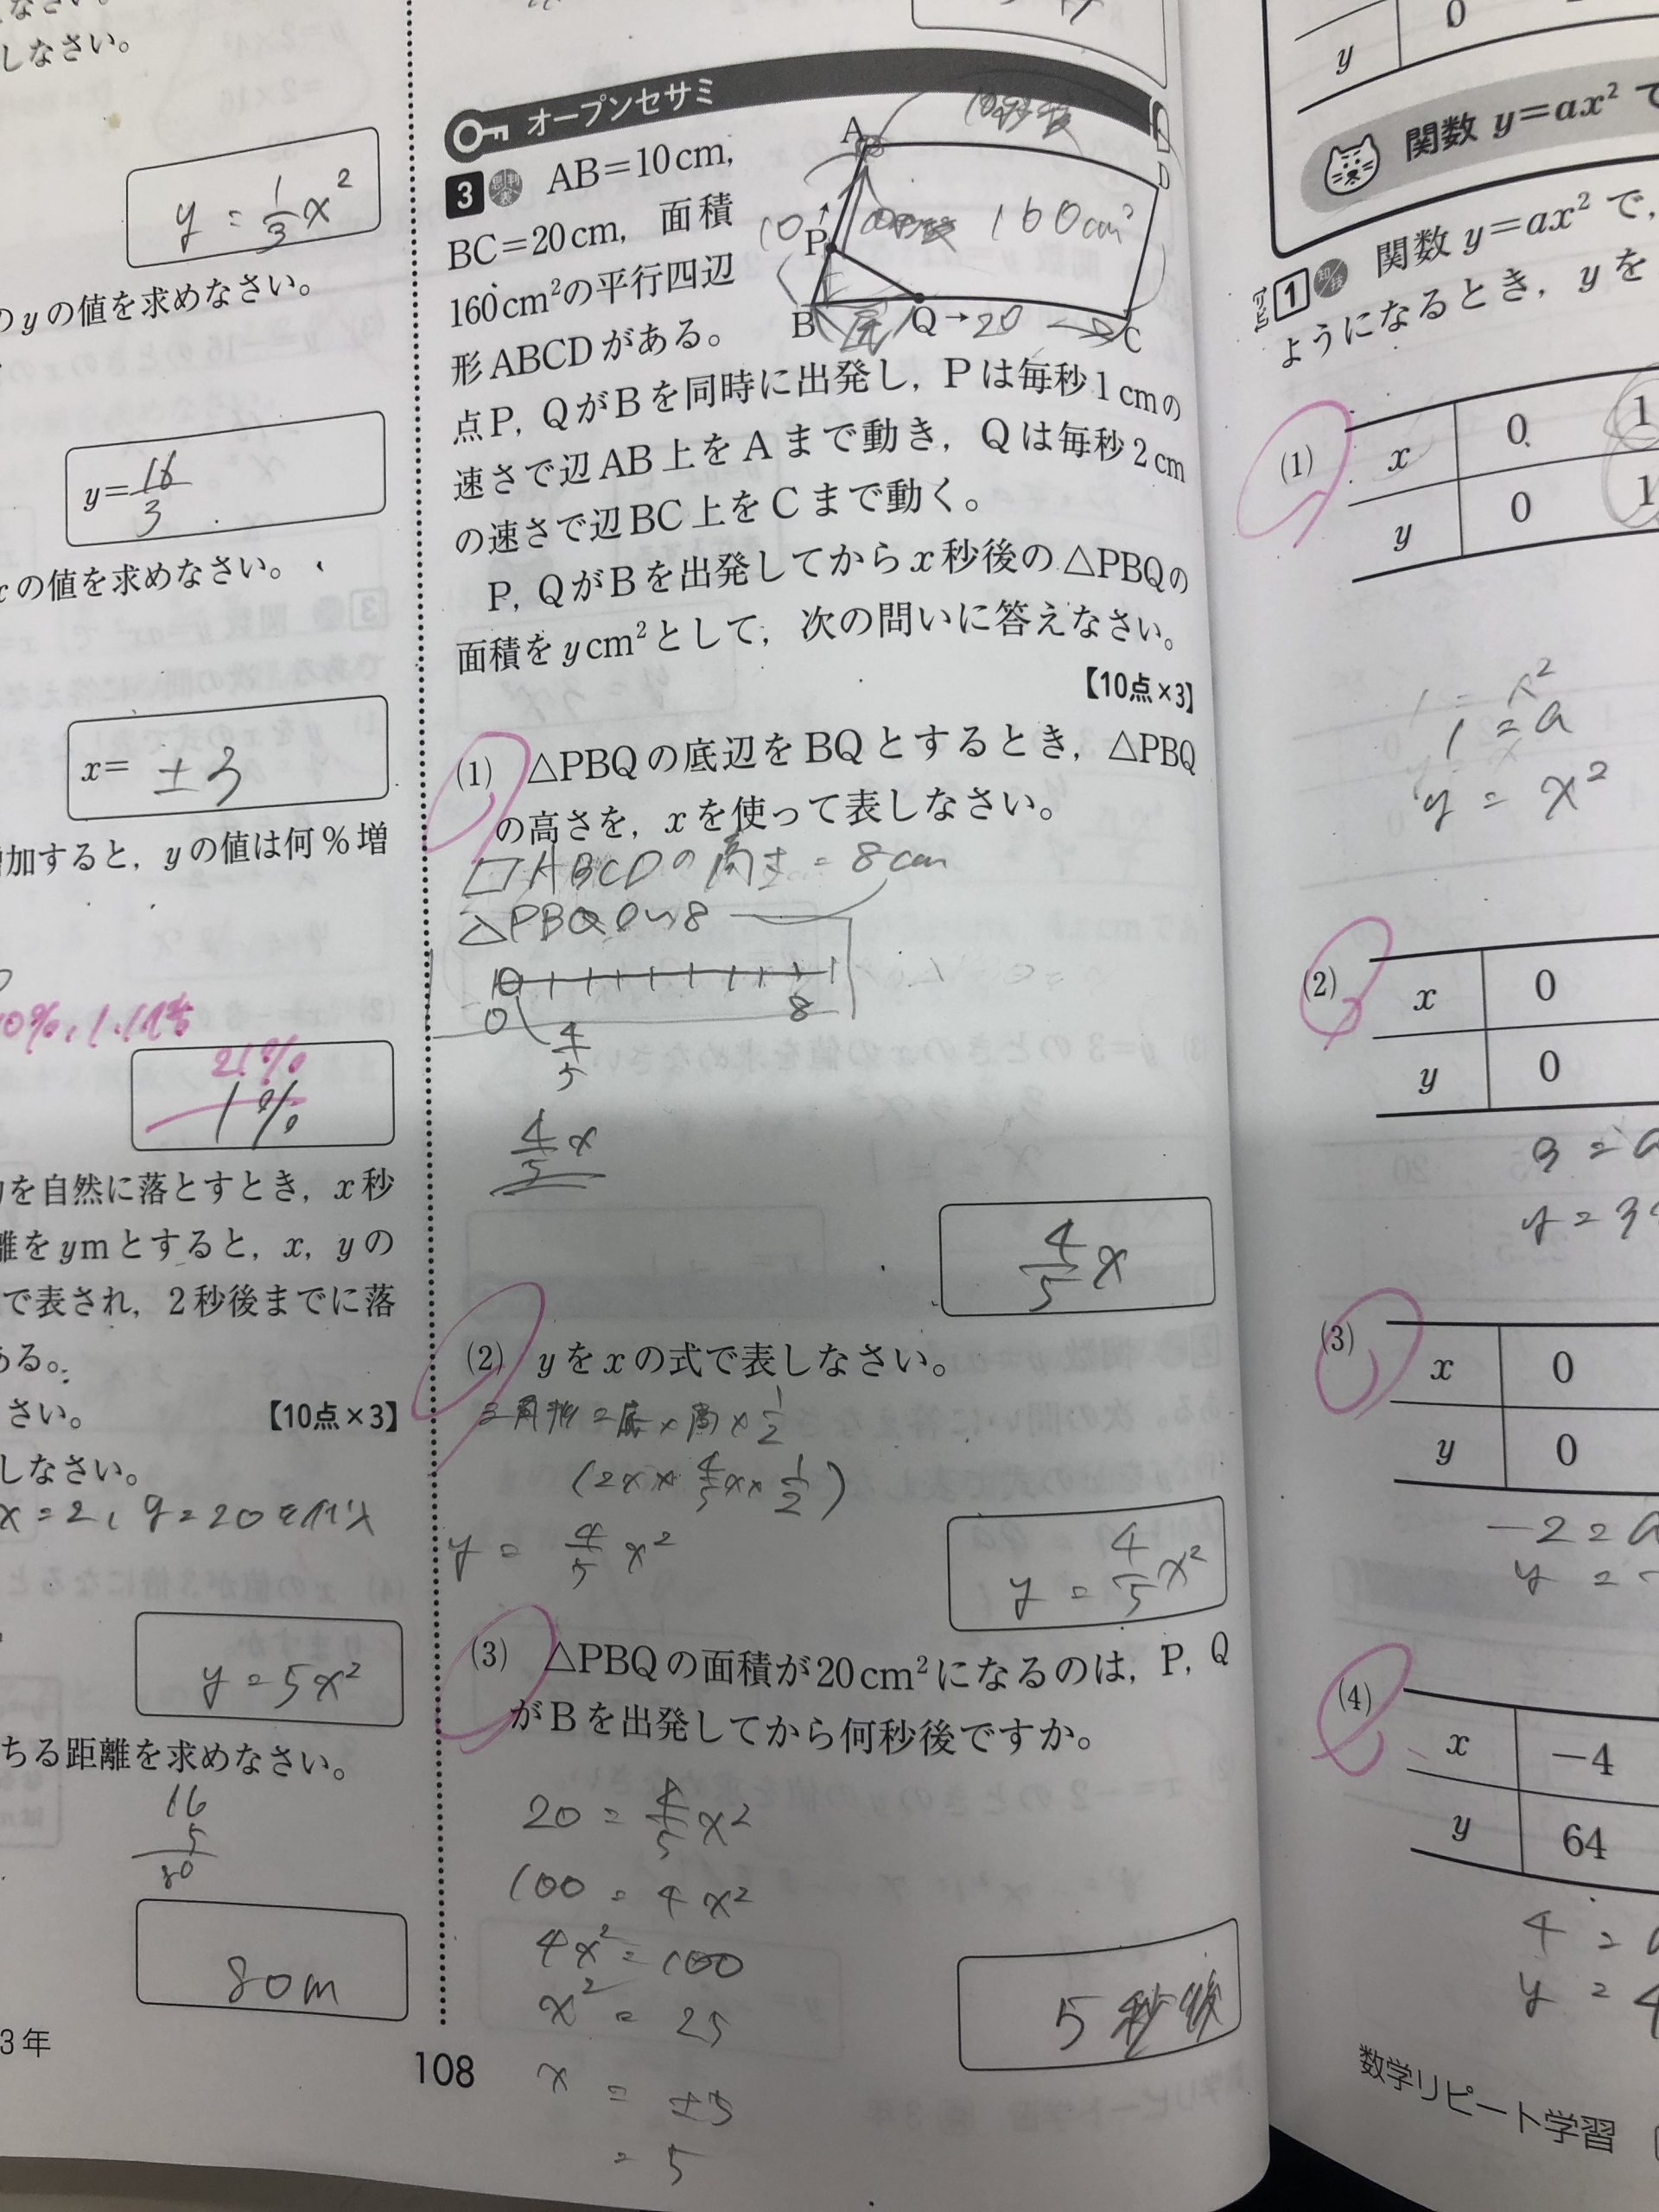 しなさい。
y = 1/3 x²
のyの値を求めなさい。
y= 16/3
xの値を求めなさい。
x= ±3
増加すると，yの値は何％増
21%
1%
を自然に落とすとき，x秒
離をymとすると，x，yの
で表され，2秒後までに落
ある。
さい。
【10点×3】
しなさい。
x=2, y=20を代入
y=5x²
ちる距離を求めなさい。
16
5
80
80m
3年
108
オープンセサミ
3 AB=10cm，
BC=20cm，面積
160cm²の平行四辺
形ABCDがある。
点P，QがBを同時に出発し，Pは毎秒1cmの
速さで辺AB上をAまで動き，Qは毎秒2cm
の速さで辺BC上をCまで動く。
P，QがBを出発してからx秒後の△PBQの
面積をycm²として，次の問いに答えなさい。
【10点×3】
A
10秒後
D
10
P
160cm²
B
底
Q→20
C
(1) △PBQの底辺をBQとするとき，△PBQ
の高さを，xを使って表しなさい。
▱ABCDの高さ=8cm
△PBQ 0~8
10
0
8
4/5
4/5 x
4/5 x
(2) yをxの式で表しなさい。
三角形=底×高×1/2
(2x×4/5x×1/2)
y = 4/5 x²
y = 4/5 x²
(3) △PBQの面積が20cm²になるのは，P，Q
がBを出発してから何秒後ですか。
20 = 4/5 x²
100 = 4x²
4x² = 100
x² = 25
x = ±5
= 5
5秒後
y 0
関数 y=ax² で
1 関数 y=ax² で，
ようになるとき，yを
(1) x 0 1
y 0 1
1 = a
y = x²
(2) x 0
y 0
3 = a
(3) x 0
y 0
-2 = a
(4) x -4
y 64
数学リピート学習